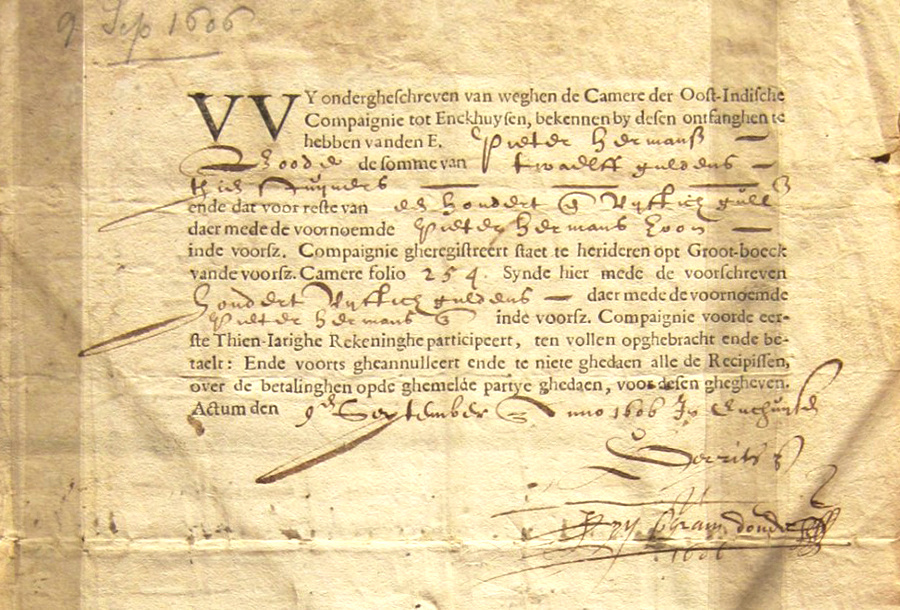 9 Sep 1606
VVY ondergheschreven van weghen de Camere der Oost-Indische
Compaignie tot Enckhuysen, bekennen by desen ontfanghen te
hebben vanden E. Pieter Hermansz
de somme van twaelff guldens
thien stuyvers
ende dat voor reste van een hondert vyftich
daer mede de voornoemde Pieter Hermans zoon
inde voorsz. Compaignie gheregistreert staet te herideren opt Groot-boeck
vande voorsz. Camere folio 254. Synde hier mede de voorschreven
hondert vyftich guldens daer mede de voornoemde
Pieter Hermans inde voorsz. Compaignie voorde eer-
ste Thien-Iarighe Rekeninghe participeert, ten vollen opghebracht ende be-
taelt: Ende voorts gheannulleert ende te niete ghedaen alle de Recipissen,
over de betalinghen opde ghemelde partye ghedaen, voor desen ghegheven.
Actum den 9en September Anno 1606 In Enchuysen
1606